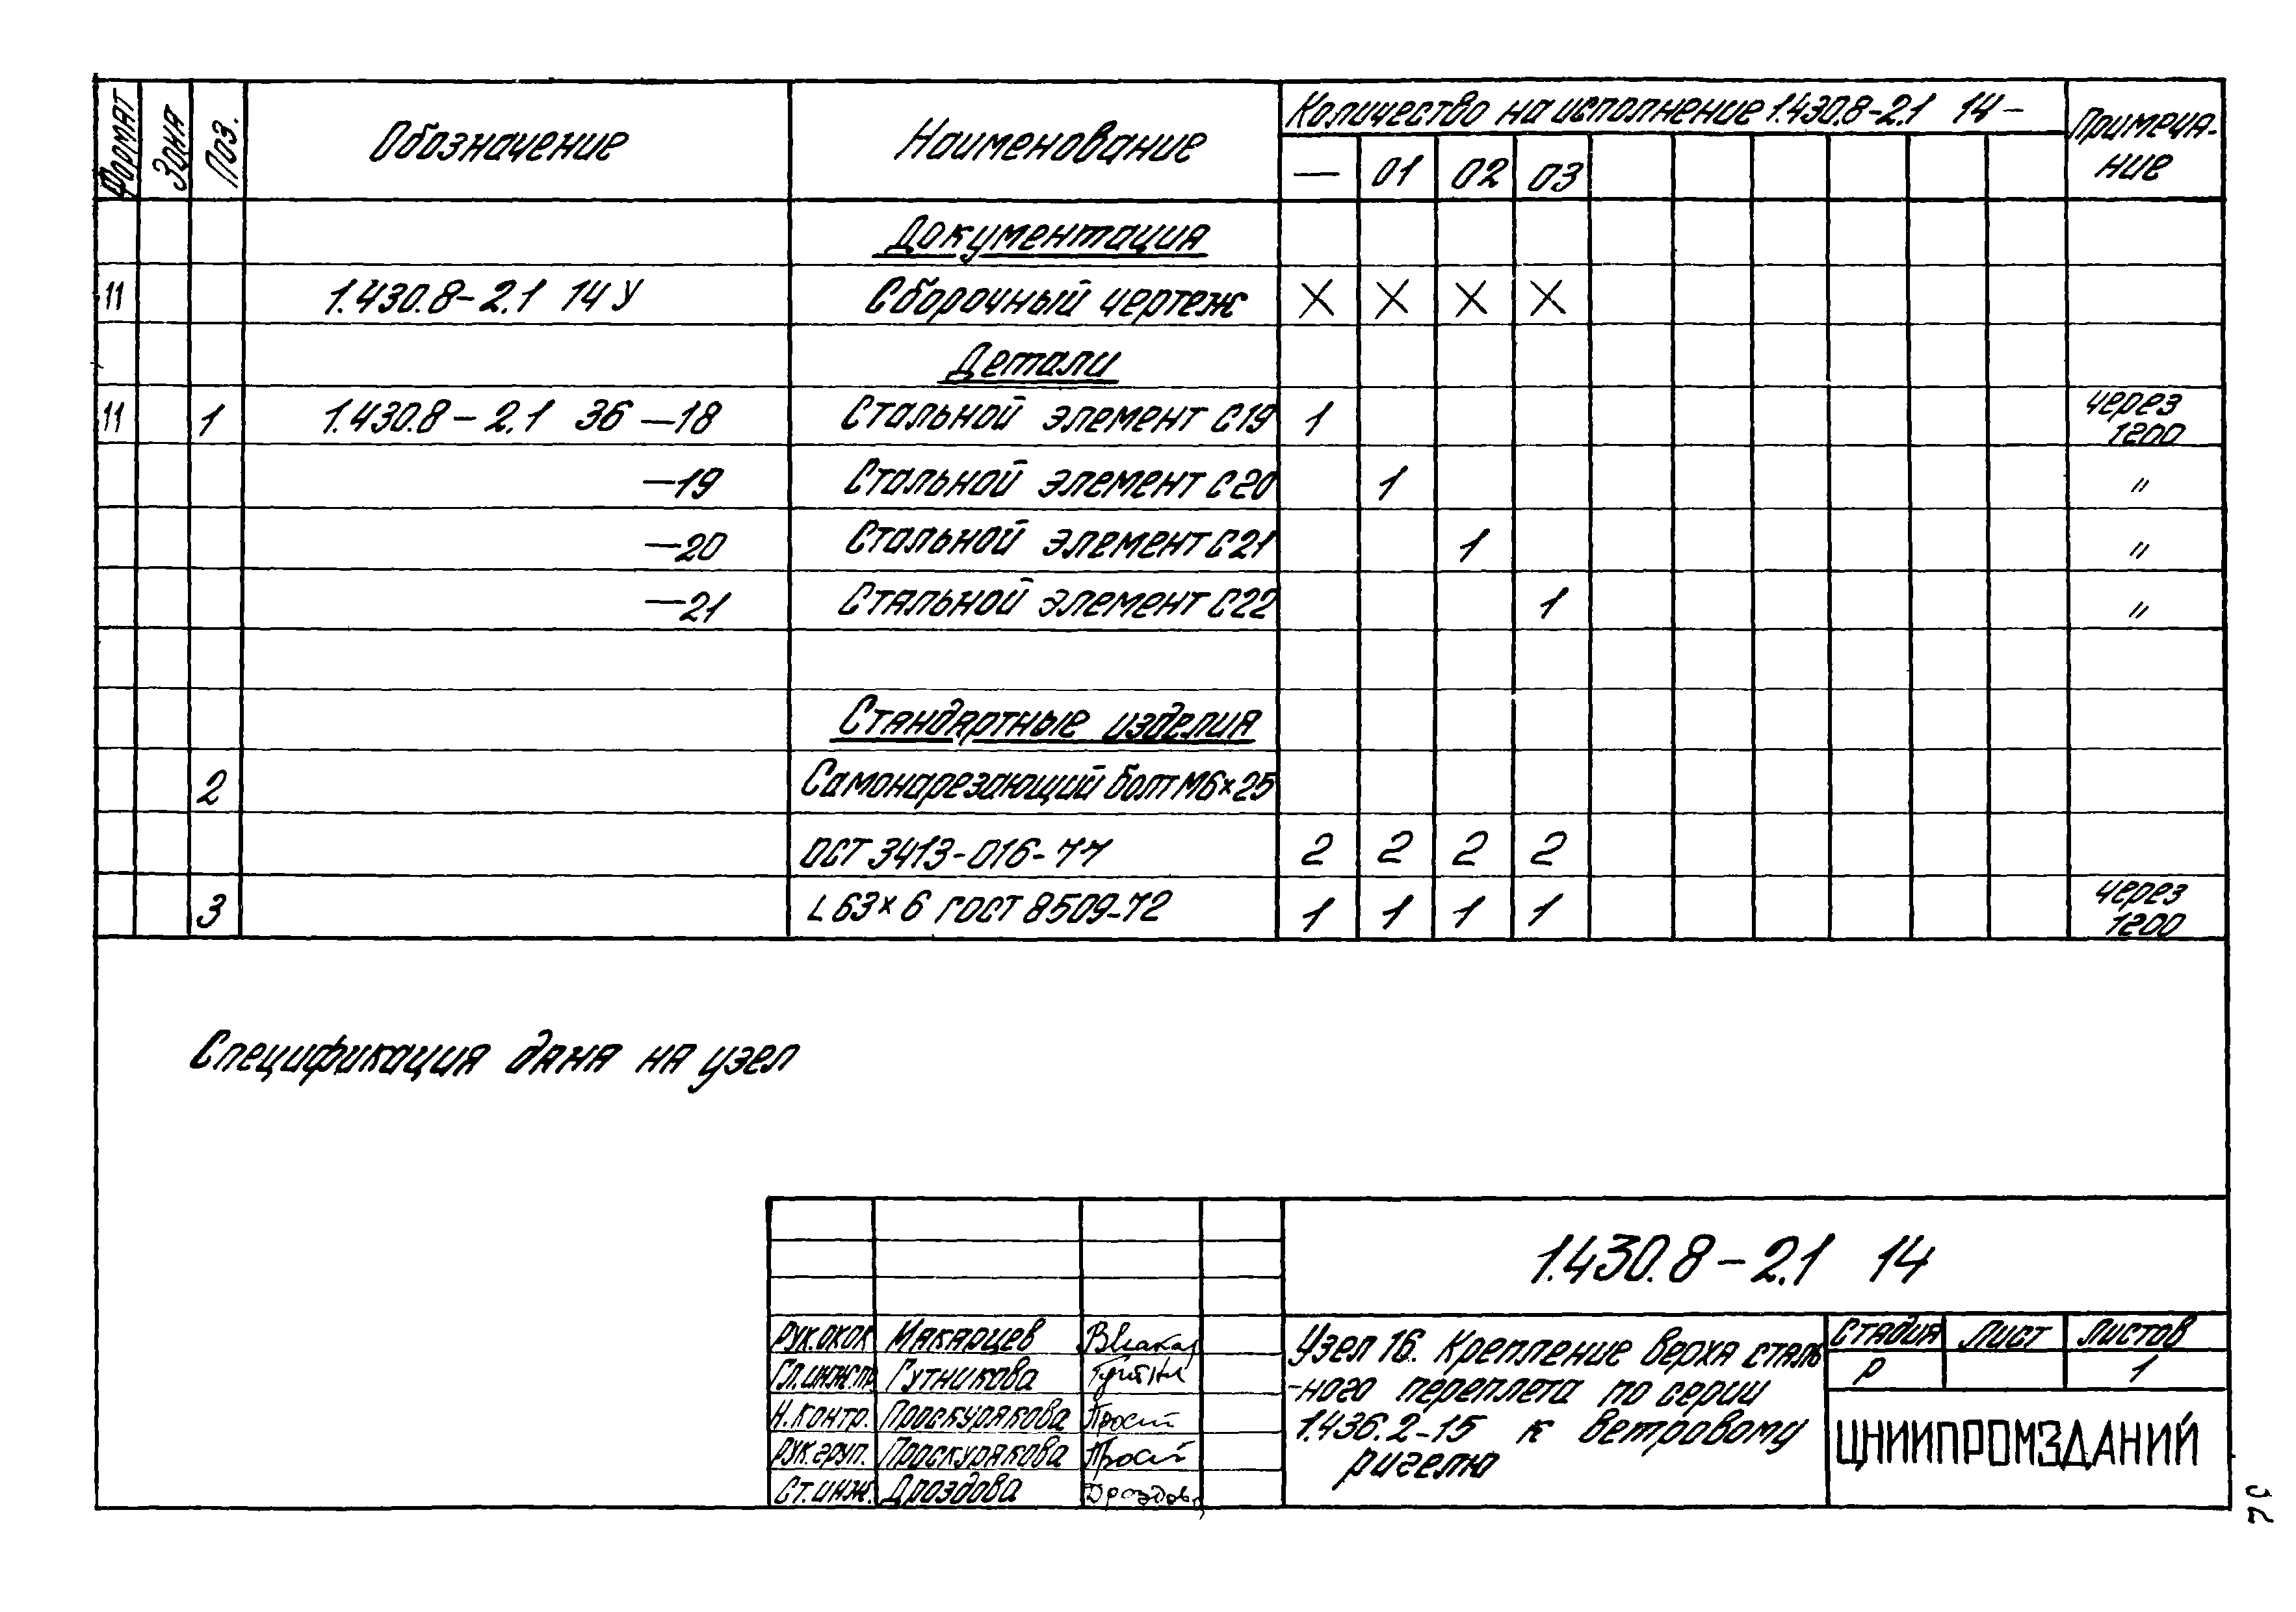 Формат Зона Поз. Обозначение Наименование Количество на исполнение 1.430.8-2.1 14- Примеча-
ние
— 01 02 03
Документация
11 1.430.8-2.1 14 У Сборочный чертеж X X X X
Детали
11 1 1.430.8-2.1 36 -18 Стальной элемент С19 1 через
1200
-19 Стальной элемент С20 1 "
-20 Стальной элемент С21 1 "
-21 Стальной элемент С22 1 "
Стандартные изделия
2 Самонарезающий болт М6×25
ОСТ 3413-016-77 2 2 2 2
3 L 63×6 ГОСТ 8509-72 1 1 1 1 через
1200
Спецификация дана на узел
1.430.8-2.1 14
Рук.окок Макарцев
Гл.инж.пр Гутникова
Н.контр. Проскурякова
Рук.груп. Проскурякова
Ст.инж. Дроздова
Узел 16. Крепление верха сталь
-ного переплета по серии
1.436.2-15 к ветровому
ригелю
Стадия Лист Листов
Р 1
ЦНИИПРОМЗДАНИЙ